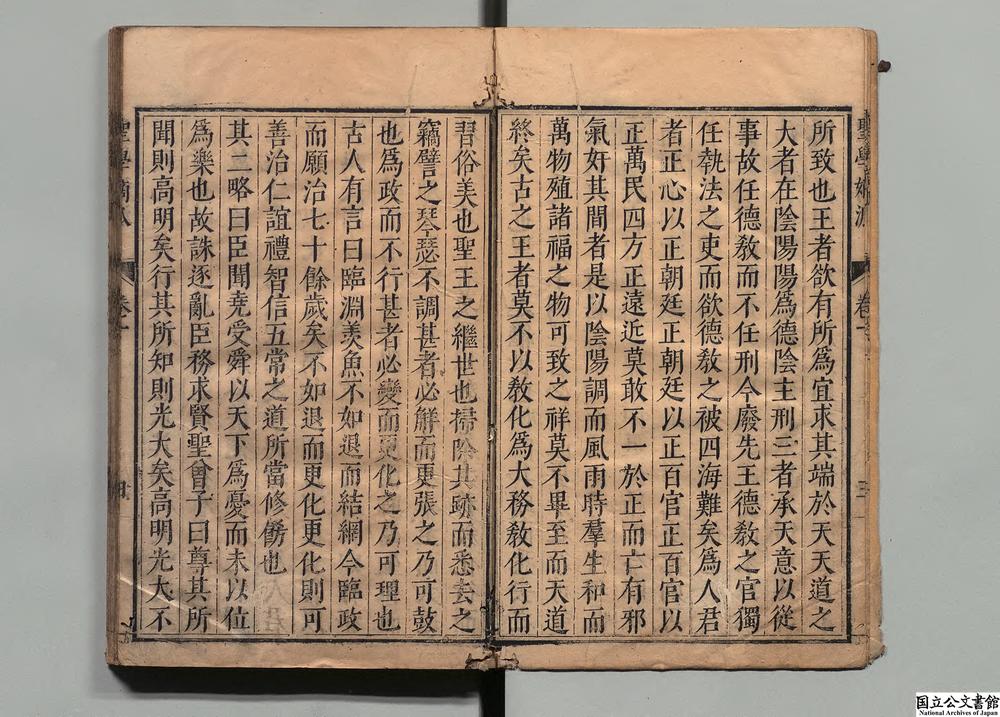 所致也王者欲有所爲宜求其端於天天道之
大者在陰陽陽爲德陰主刑三者承天意以從
事故任德敎而不任刑今廢先王德敎之官獨
任執法之吏而欲德敎之被四海難矣爲人君
者正心以正朝廷正朝廷以正百官正百官以
正萬民四方正遠近莫敢不一於正而亡有邪
氣奸其間者是以陰陽調而風雨時羣生和而
萬物殖諸福之物可致之祥莫不畢至而天道
終矣古之王者莫不以敎化爲大務敎化行而
習俗美也聖王之繼世也掃除其跡而悉去之
竊譬之琴瑟不調甚者必解而更張之乃可鼓
也爲政而不行甚者必變而更化之乃可理也
古人有言曰臨淵羡魚不如退而結網今臨政
而願治七十餘歲矣不如退而更化更化則可
善治仁誼禮智信五常之道所當修傋也
其二略曰臣聞堯受舜以天下爲憂而未以位
爲樂也故誅逐亂臣務求賢聖曾子曰尊其所
聞則高明矣行其所知則光大矣高明光大不
聖學
卷十
三
聖學
卷十
国立公文書館
National Archives of Japan